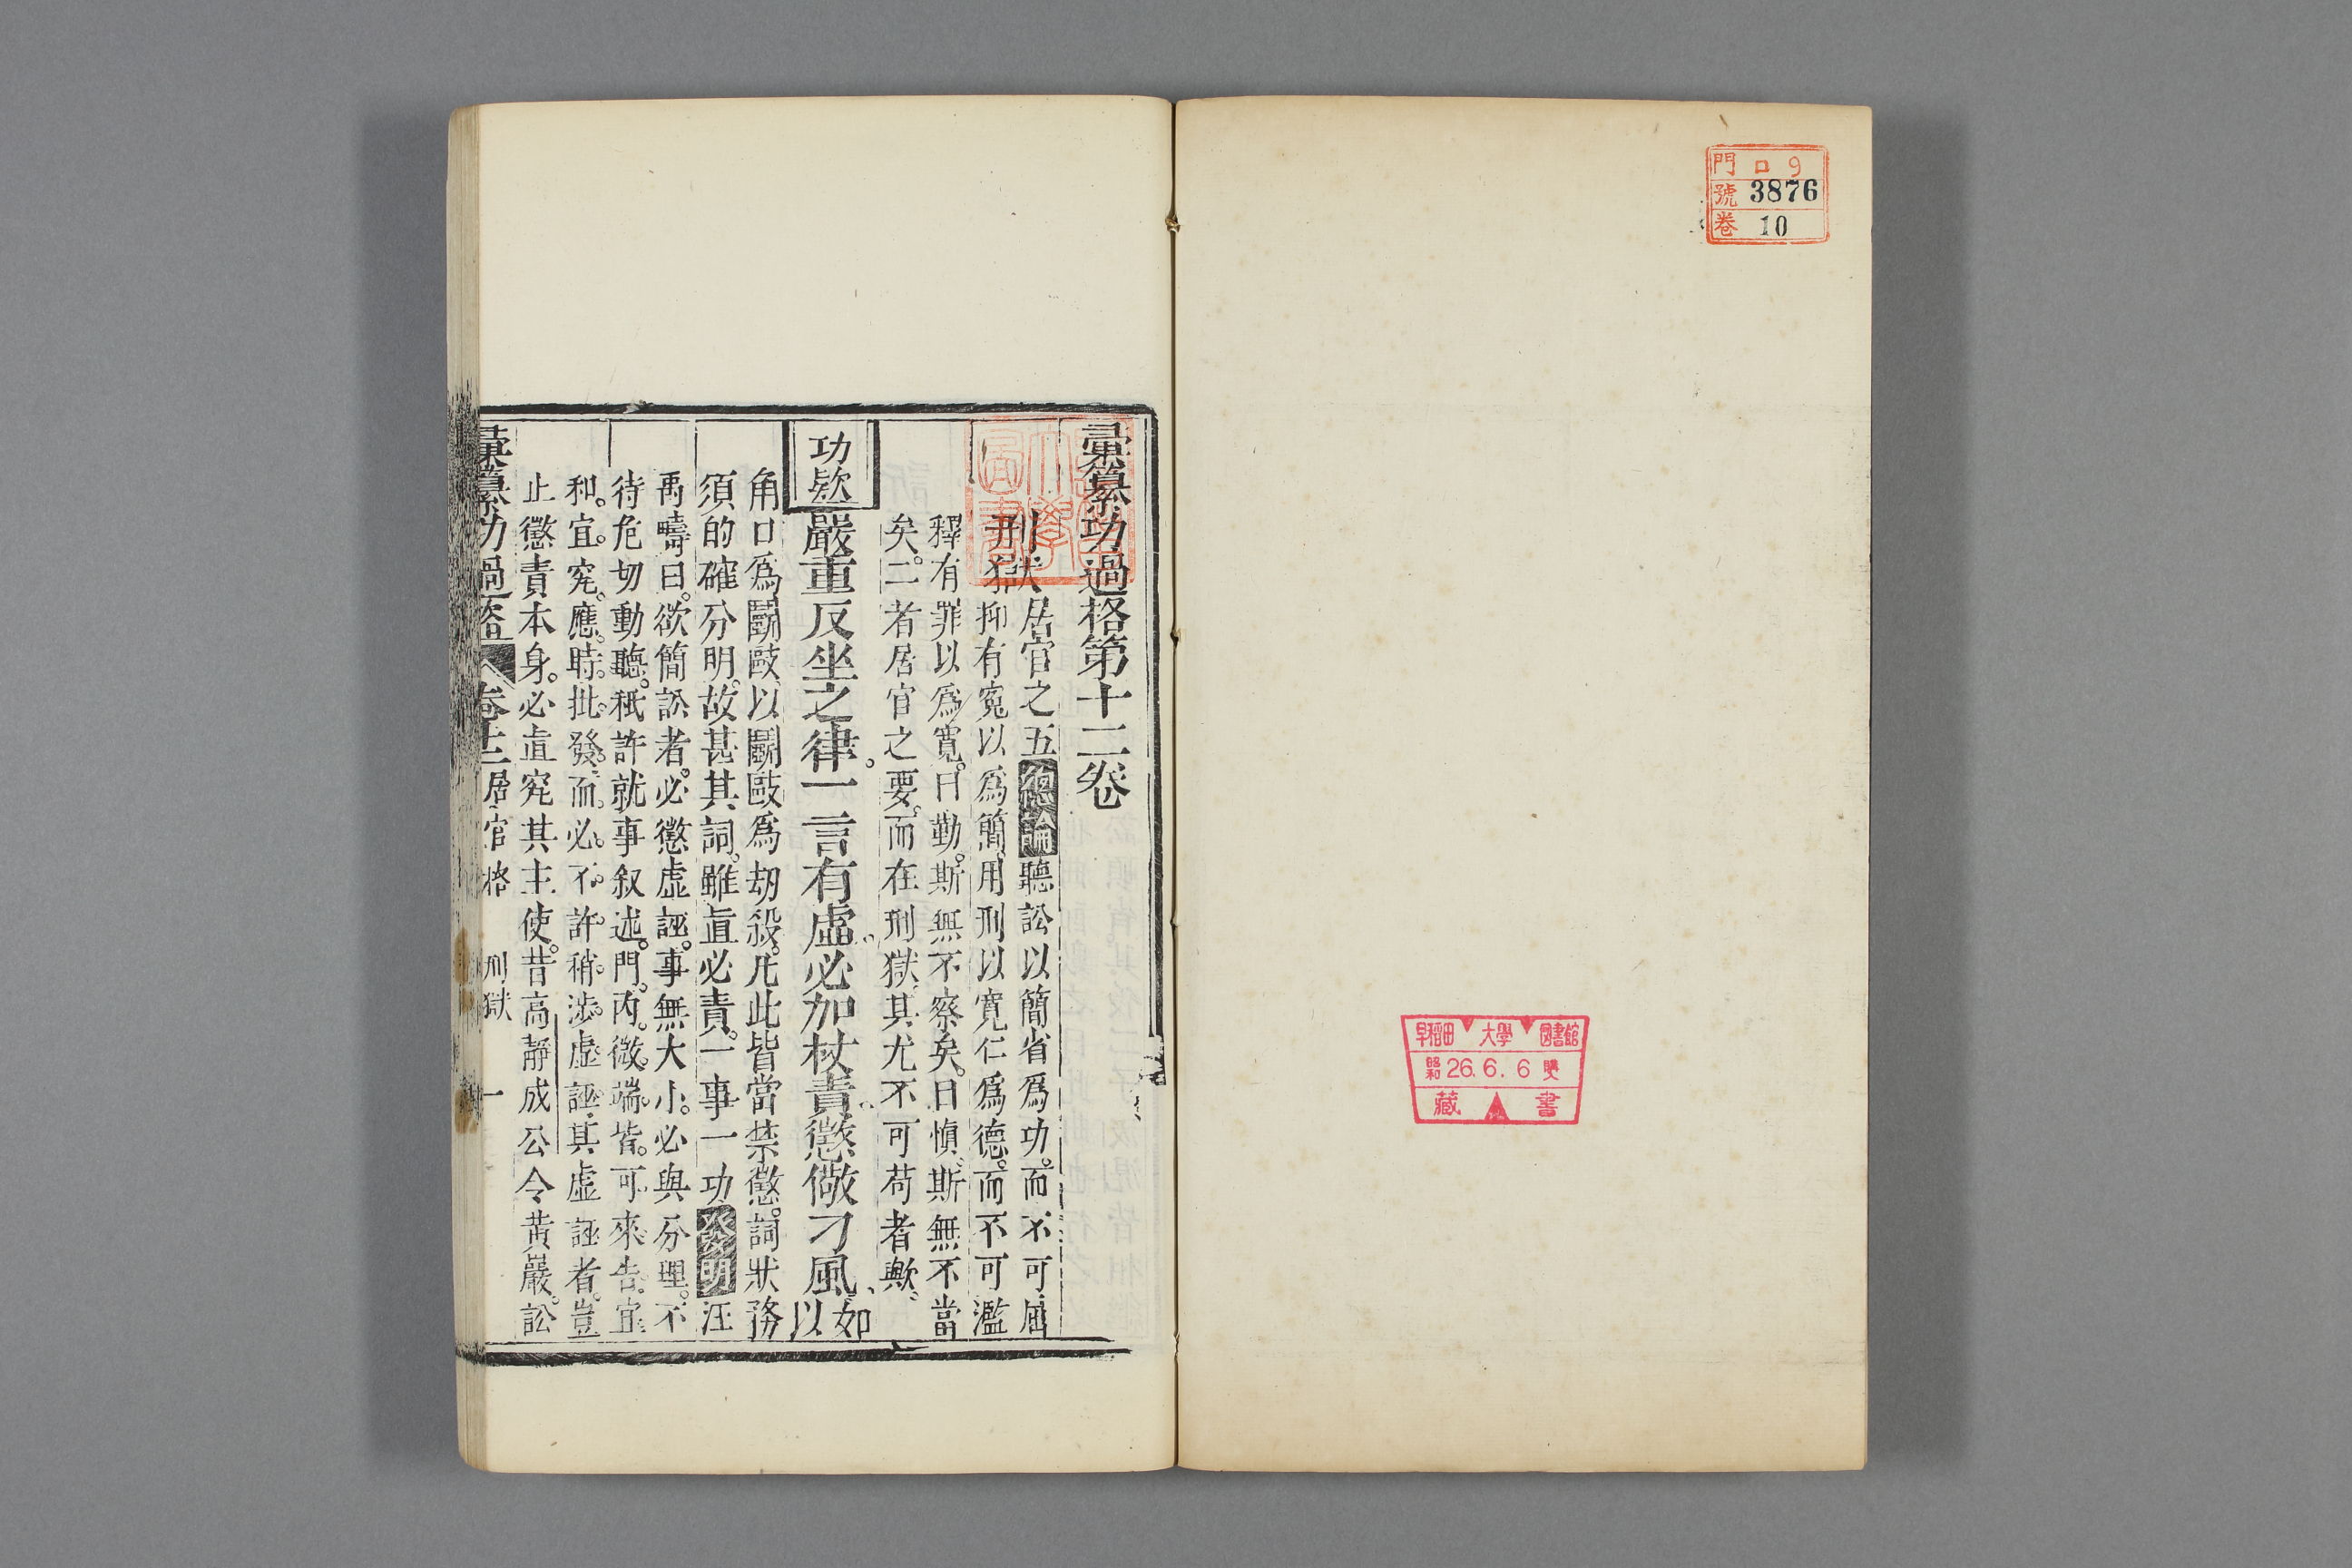 門 ロ 9
號 3876
卷 10
早稻田大學圖書館
昭和 26. 6. 6 購
藏書
彙纂功過格第十二卷
刑獄 居官之五 總論 聽訟以簡省爲功。而不可屈
抑有寃以爲簡。用刑以寬仁爲德。而不可濫
釋有罪以爲寬。曰勤。斯無不察矣。曰愼、斯無不當
矣。二者居官之要。而在刑獄、其尤不可苟者歟、
功款
嚴重反坐之律。一言有虛、必加杖責、懲儆刁風、如以
角口爲鬭毆、以鬭毆爲刼殺。凡此皆當禁懲。詞狀務
須的確分明。故甚其詞。雖眞必責。一事一功 發明 汪
禹疇曰。欲簡訟者。必懲虛誣。事無大小。必與分理。不
待危切動聽。秪許就事叙述。門。內。微。端。皆。可。來。告。宜
和。宜。究。應。時。批。發。而。必。不。許。稍。涉。虛。誣。其虛誣者。豈
止懲責本身。必直究其主使。昔高靜成公令黃巖。訟
彙纂功過格 卷十二 居官格 刑獄 一